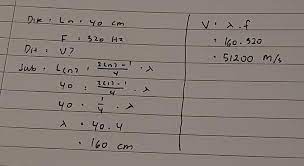 Dik : Ln = 40 cm
F = 320 Hz
Dit : V?
Jwb : L(n) = 2(n)-1/4 . λ
40 = 2(1)-1/4 . λ
40 = 1/4 . λ
λ = 40.4
= 160 cm
V = λ . f
= 160.320
= 51200 m/s